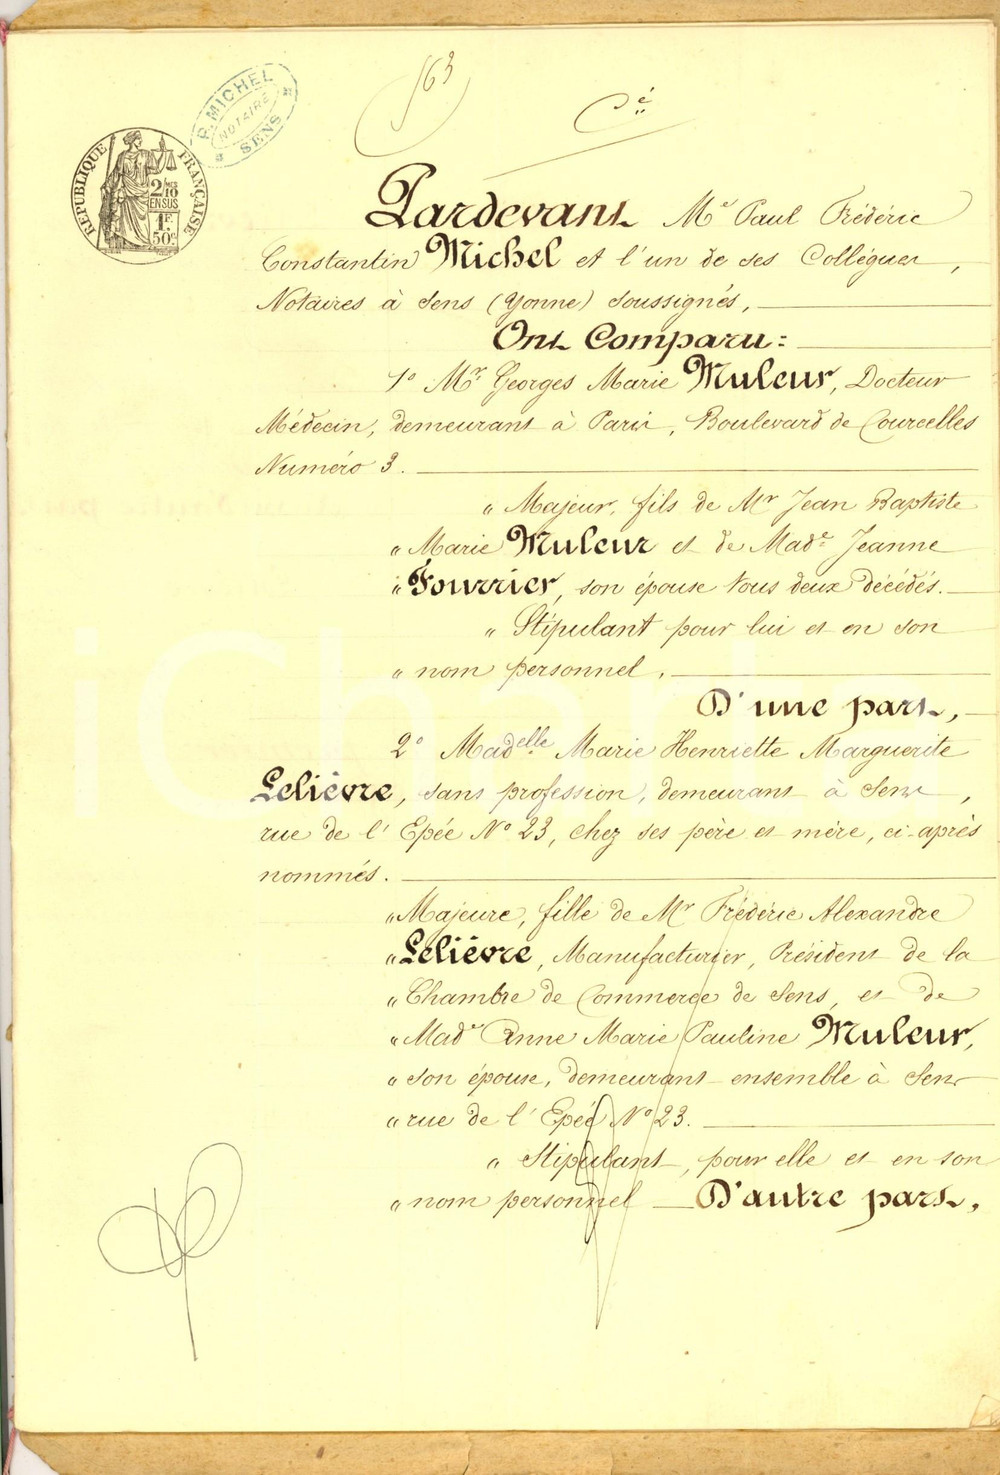 563
Cé
P. MICHEL
NOTAIRE
SENS
RÉPUBLIQUE FRANÇAISE
2/10 MES
EN SUS
1F.
50c
Pardevant Me Paul Frédéric
Constantin Michel et l'un de ses Collègues,
Notaires à Sens (Yonne) soussignés,
Ont Comparu:
1° Mr. Georges Marie Muleur, Docteur
Médecin, demeurant à Paris, Boulevard de Courcelles
Numéro 3.
" Majeur, fils de Mr Jean Baptiste
" Marie Muleur et de Made Jeanne
" Fourrier, son épouse tous deux décédés.
" Stipulant pour lui et en son
" nom personnel,
D'une part,
2° Madelle Marie Henriette Marguerite
Lelièvre, sans profession, demeurant à Sens,
rue de l'Epée N° 23, chez ses père et mère, ci-après
nommés.
" Majeure, fille de Mr Frédéric Alexandre
" Lelièvre, Manufacturier, Président de la
" Chambre de Commerce de Sens, et de
" Made Anne Marie Pauline Muleur,
" son épouse, demeurant ensemble à Sens
" rue de l'Epée N° 23.
" Stipulant, pour elle et en son
" nom personnel D'autre part,